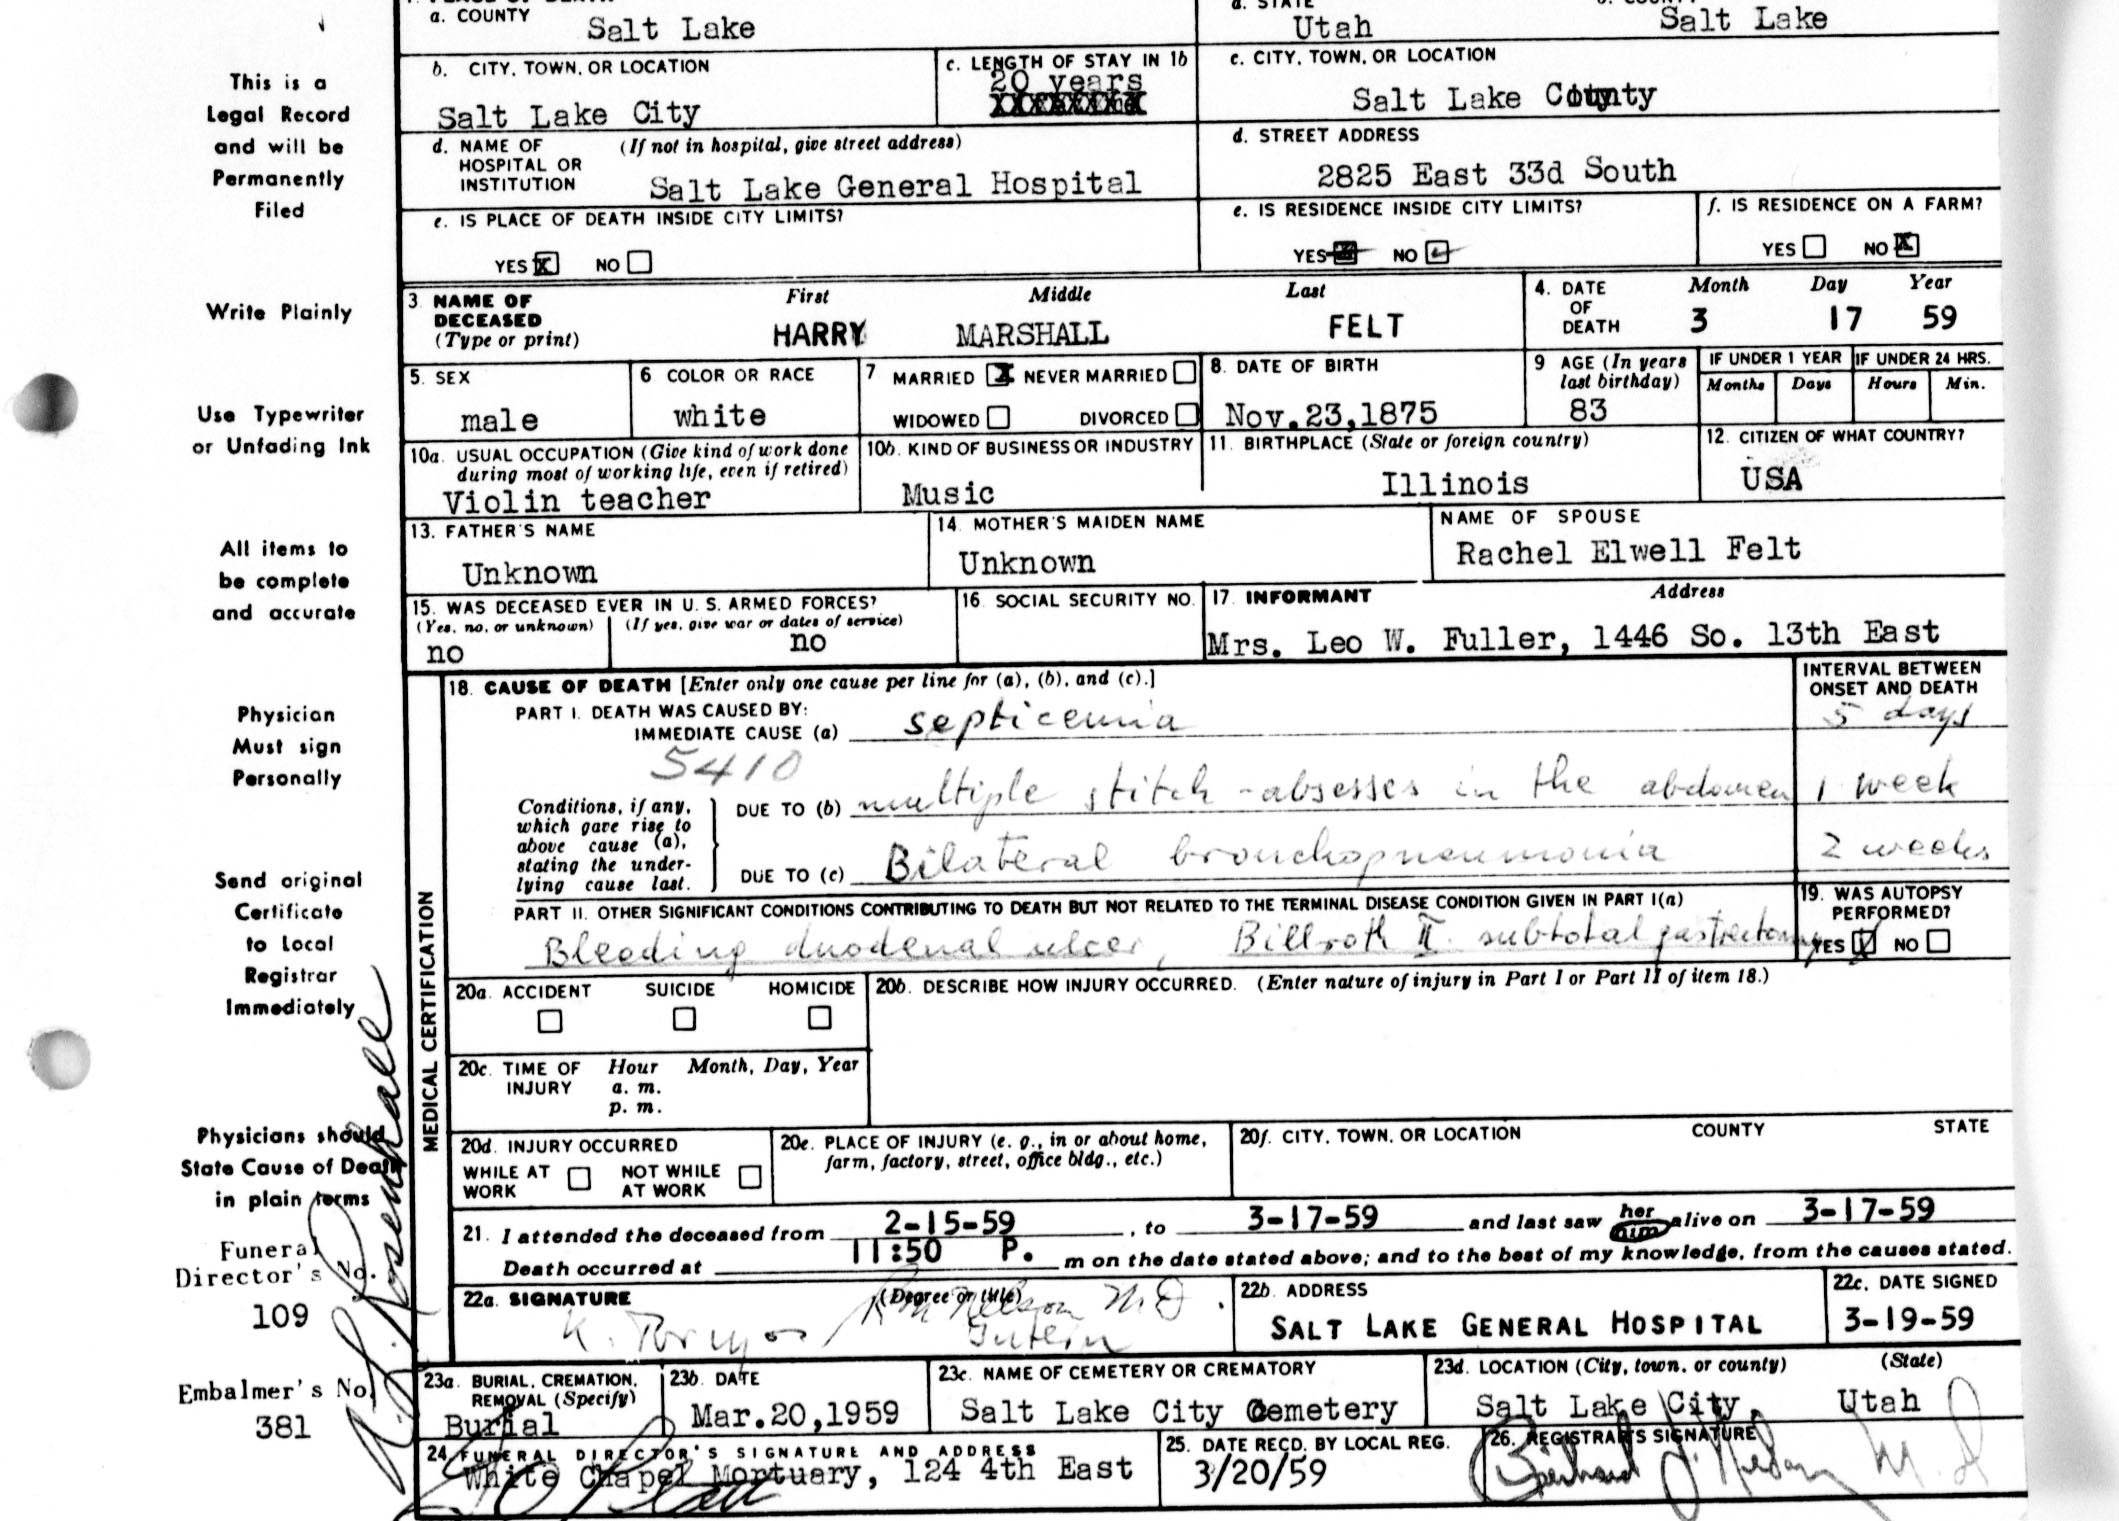 a. COUNTY Salt Lake
a. STATE Utah Salt Lake
b. CITY, TOWN, OR LOCATION Salt Lake City
c. LENGTH OF STAY IN 1b 20 years
c. CITY, TOWN, OR LOCATION Salt Lake County
d. NAME OF HOSPITAL OR INSTITUTION (If not in hospital, give street address) Salt Lake General Hospital
d. STREET ADDRESS 2825 East 33d South
e. IS PLACE OF DEATH INSIDE CITY LIMITS? YES X NO
e. IS RESIDENCE INSIDE CITY LIMITS? YES NO
f. IS RESIDENCE ON A FARM? YES NO X
3. NAME OF DECEASED (Type or print) First HARRY Middle MARSHALL Last FELT
4. DATE OF DEATH Month 3 Day 17 Year 59
5. SEX male
6 COLOR OR RACE white
7 MARRIED X NEVER MARRIED WIDOWED DIVORCED
8. DATE OF BIRTH Nov.23,1875
9 AGE (In years last birthday) 83
IF UNDER 1 YEAR Months Days
IF UNDER 24 HRS. Hours Min.
10a. USUAL OCCUPATION (Give kind of work done during most of working life, even if retired) Violin teacher
10b. KIND OF BUSINESS OR INDUSTRY Music
11. BIRTHPLACE (State or foreign country) Illinois
12. CITIZEN OF WHAT COUNTRY? USA
13. FATHER'S NAME Unknown
14. MOTHER'S MAIDEN NAME Unknown
NAME OF SPOUSE Rachel Elwell Felt
15. WAS DECEASED EVER IN U. S. ARMED FORCES? (Yes, no, or unknown) no (If yes, give war or dates of service) no
16. SOCIAL SECURITY NO.
17. INFORMANT Address Mrs. Leo W. Fuller, 1446 So. 13th East
MEDICAL CERTIFICATION
18. CAUSE OF DEATH [Enter only one cause per line for (a), (b), and (c).]
INTERVAL BETWEEN ONSET AND DEATH
PART I. DEATH WAS CAUSED BY:
IMMEDIATE CAUSE (a) septicemia 5 days
5410
Conditions, if any, which gave rise to above cause (a), stating the underlying cause last.
DUE TO (b) multiple stitch-absesses in the abdomen 1 week
DUE TO (c) Bilateral bronchopneumonia 2 weeks
PART II. OTHER SIGNIFICANT CONDITIONS CONTRIBUTING TO DEATH BUT NOT RELATED TO THE TERMINAL DISEASE CONDITION GIVEN IN PART I(a)
Bleeding duodenal ulcer, Billroth II subtotal gastrectomy
19. WAS AUTOPSY PERFORMED? YES X NO
20a. ACCIDENT SUICIDE HOMICIDE
20b. DESCRIBE HOW INJURY OCCURRED. (Enter nature of injury in Part I or Part II of item 18.)
20c. TIME OF INJURY Hour a. m. p. m. Month, Day, Year
20d. INJURY OCCURRED WHILE AT WORK NOT WHILE AT WORK
20e. PLACE OF INJURY (e. g., in or about home, farm, factory, street, office bldg., etc.)
20f. CITY, TOWN, OR LOCATION COUNTY STATE
21. I attended the deceased from 2-15-59, to 3-17-59 and last saw her him alive on 3-17-59
Death occurred at 11:50 P. m on the date stated above; and to the best of my knowledge, from the causes stated.
22a. SIGNATURE (Degree or title) Nelson MD Intern
22b. ADDRESS SALT LAKE GENERAL HOSPITAL
22c. DATE SIGNED 3-19-59
23a. BURIAL, CREMATION, REMOVAL (Specify) Burial
23b. DATE Mar.20,1959
23c. NAME OF CEMETERY OR CREMATORY Salt Lake City Cemetery
23d. LOCATION (City, town, or county) (State) Salt Lake City, Utah
24. FUNERAL DIRECTOR'S SIGNATURE AND ADDRESS White Chapel Mortuary, 124 4th East
25. DATE RECD. BY LOCAL REG. 3/20/59
26. REGISTRAR'S SIGNATURE
This is a
Legal Record
and will be
Permanently
Filed
Write Plainly
Use Typewriter
or Unfading Ink
All items to
be complete
and accurate
Physician
Must sign
Personally
Send original
Certificate
to Local
Registrar
Immediately
Physicians should
State Cause of Death
in plain terms
Funeral
Director's No.
109
Embalmer's No.
381